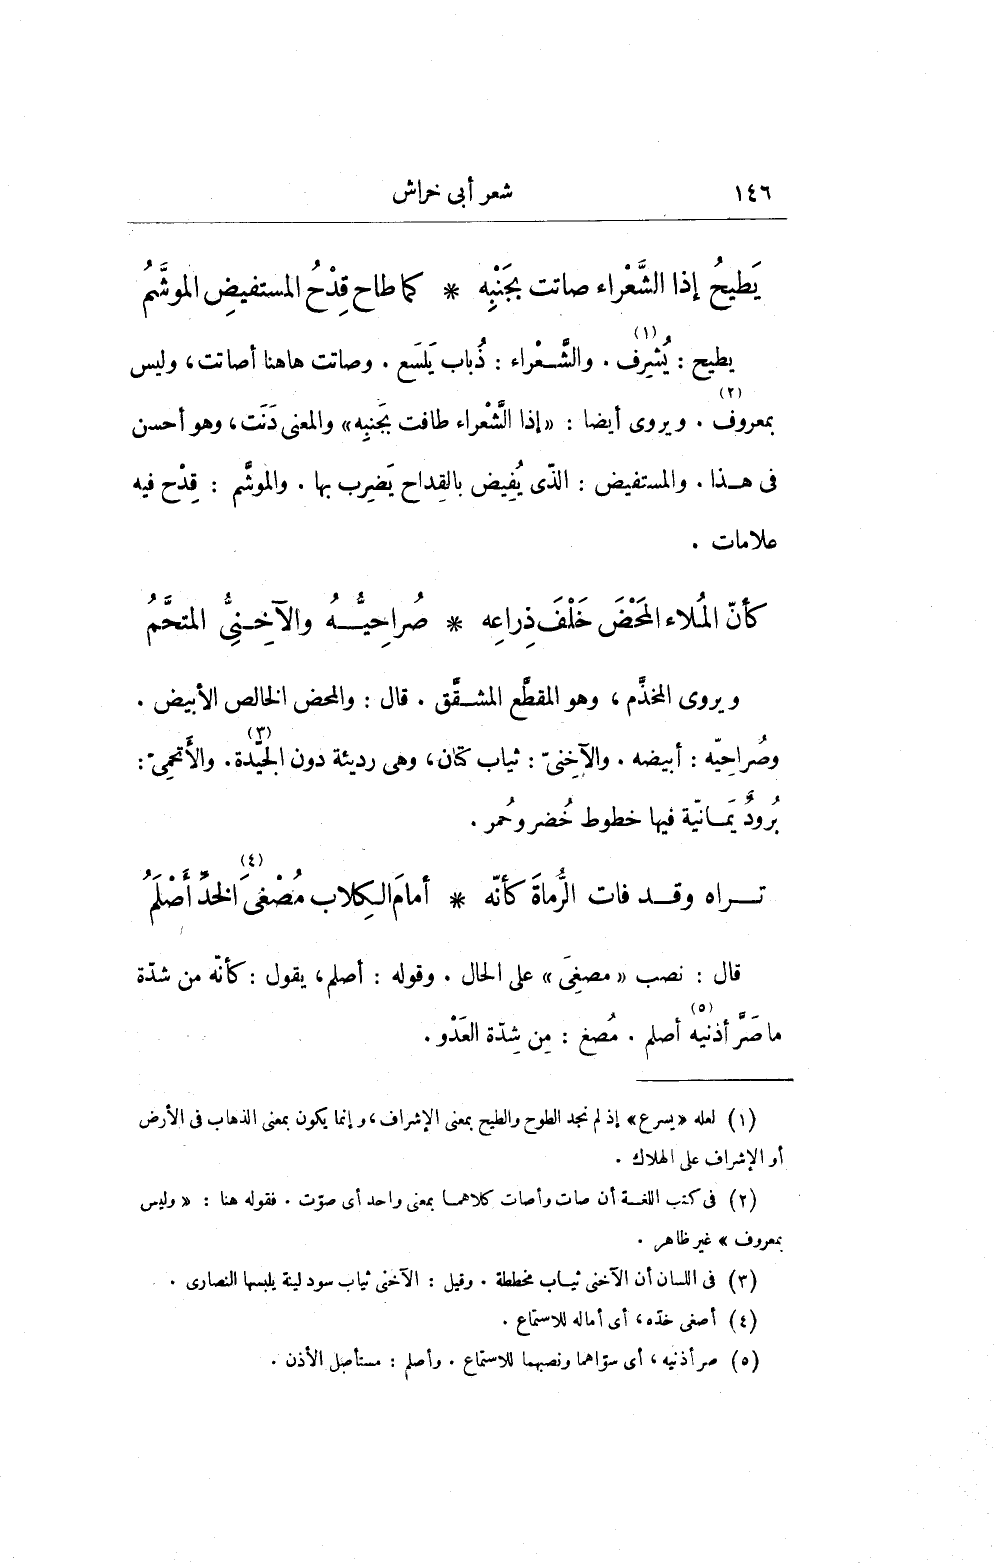 ١٤٦ شعر أبى خراش
يَطيحُ إذا الشَّعْراء صاتت بجَنْبِه * كما طاح قِدْحُ المستفيضِ الموشَّمُ
يطيح : يُشرِف (١) . والشَّعْراء : ذُباب يَلسَع . وصاتت هاهنا أصاتت، وليس
بمعروف (٢) . ويروى أيضا : «إذا الشَّعْراء طافت بجَنبِه» والمعنى دَنَت، وهو أحسن
فى هذا . والمستفيض : الذّى يُفِيض بالقِداح يَضرِب بها . والموشَّم : قِدْح فيه
علامات .
كأنّ المُلاء المَحْضَ خَلْفَ ذِراعِه * صُراحِيُّهُ والآخِنِىُّ المتحَّمُ
ويروى المخذَّم ، وهو المقطَّع المشقَّق . قال : والمحض الخالص الأبيض .
وصُراحِيّه : أبيضه . والآخِنىّ : ثياب كتان، وهى رديئة دون الجيّدة (٣). والأَتحمِىّ :
بُرودٌ يَمانيّة فيها خطوط خُضر وحُمر .
تراه وقد فات الرُّماةَ كأنّه * أمامَ الكِلاب مُصْغِىَ الخدِّ (٤) أَصْلَمُ
قال : نصب « مصغِىَ » على الحال . وقوله : أصلم، يقول : كأنّه من شدّة
ما صَرَّ أذنَيْه (٥) أصلم . مُصغ : مِن شِدّة العَدْو .
(١) لعله «يسرع» إذ لم نجد الطوح والطيح بمعنى الإشراف، وإنما يكون بمعنى الذهاب فى الأرض
أو الإشراف على الهلاك .
(٢) فى كتب اللغة أن صات وأصات كلاهما بمعنى واحد أى صوّت . فقوله هنا : « وليس
بمعروف » غير ظاهر .
(٣) فى اللسان أن الآخنى ثياب مخططة . وقيل : الآخنى ثياب سود لينة يلبسها النصارى .
(٤) أصغى خدّه، أى أماله للاستماع .
(٥) صر أذنيه ، أى سوّاهما ونصبهما للاستماع . وأصلم : مستأصل الأذن .